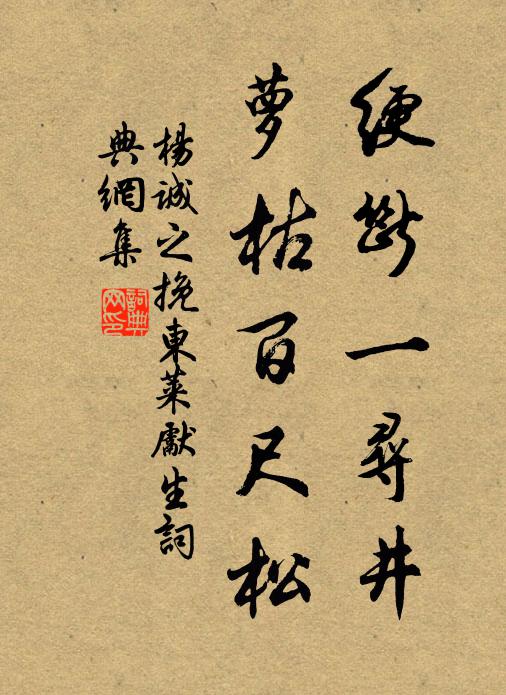 綆斷一尋井
蘿枯百尺松
楊誠之挽東萊獻生詞
典網集
詞典網印